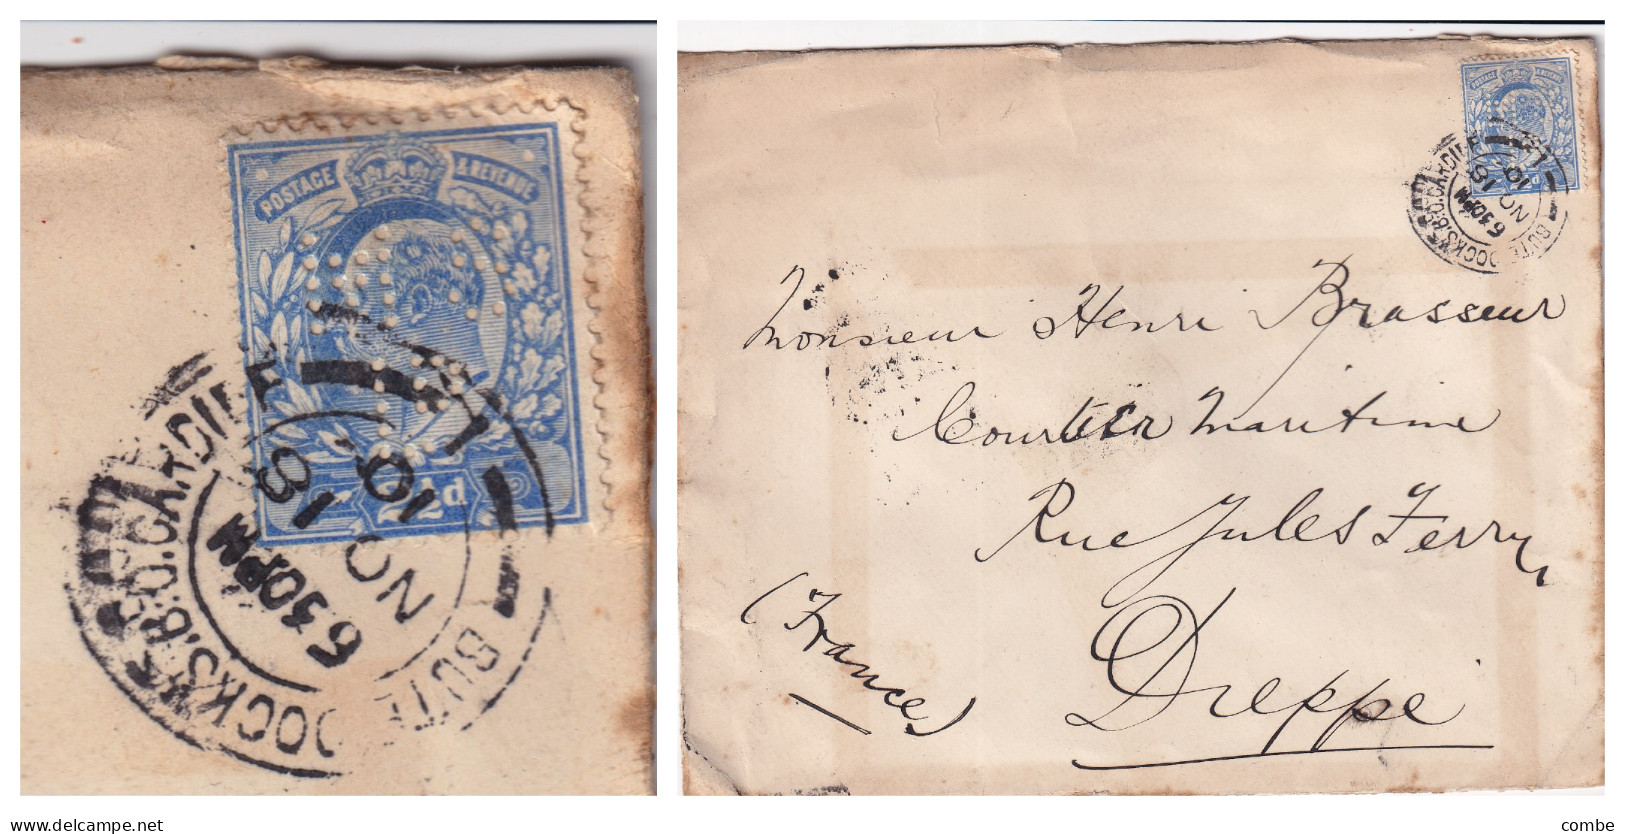 POSTAGE & REVENUE
2½d
BUTE DOCKS.B.O.CARDIFF
6 30PM
18
NO
10
1
POSTAGE & REVENUE
BUTE DOCKS.B.O.CARDIFF
6 30PM
18
NO
10
1
Monsieur Henri Brasseur
Courtier Maritime
Rue Jules Ferry
Dieppe
(France)
www.delcampe.net
combe